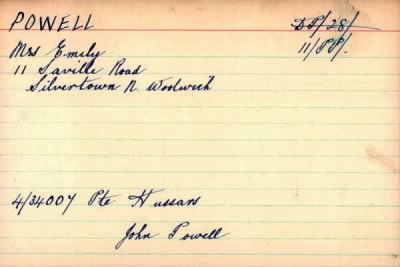 POWELL
DP/28/
11/PP/.
Mrs Emily
11 Saville Road
Silvertown N. Woolwich
4/34007 Pte Hussars
John Powell